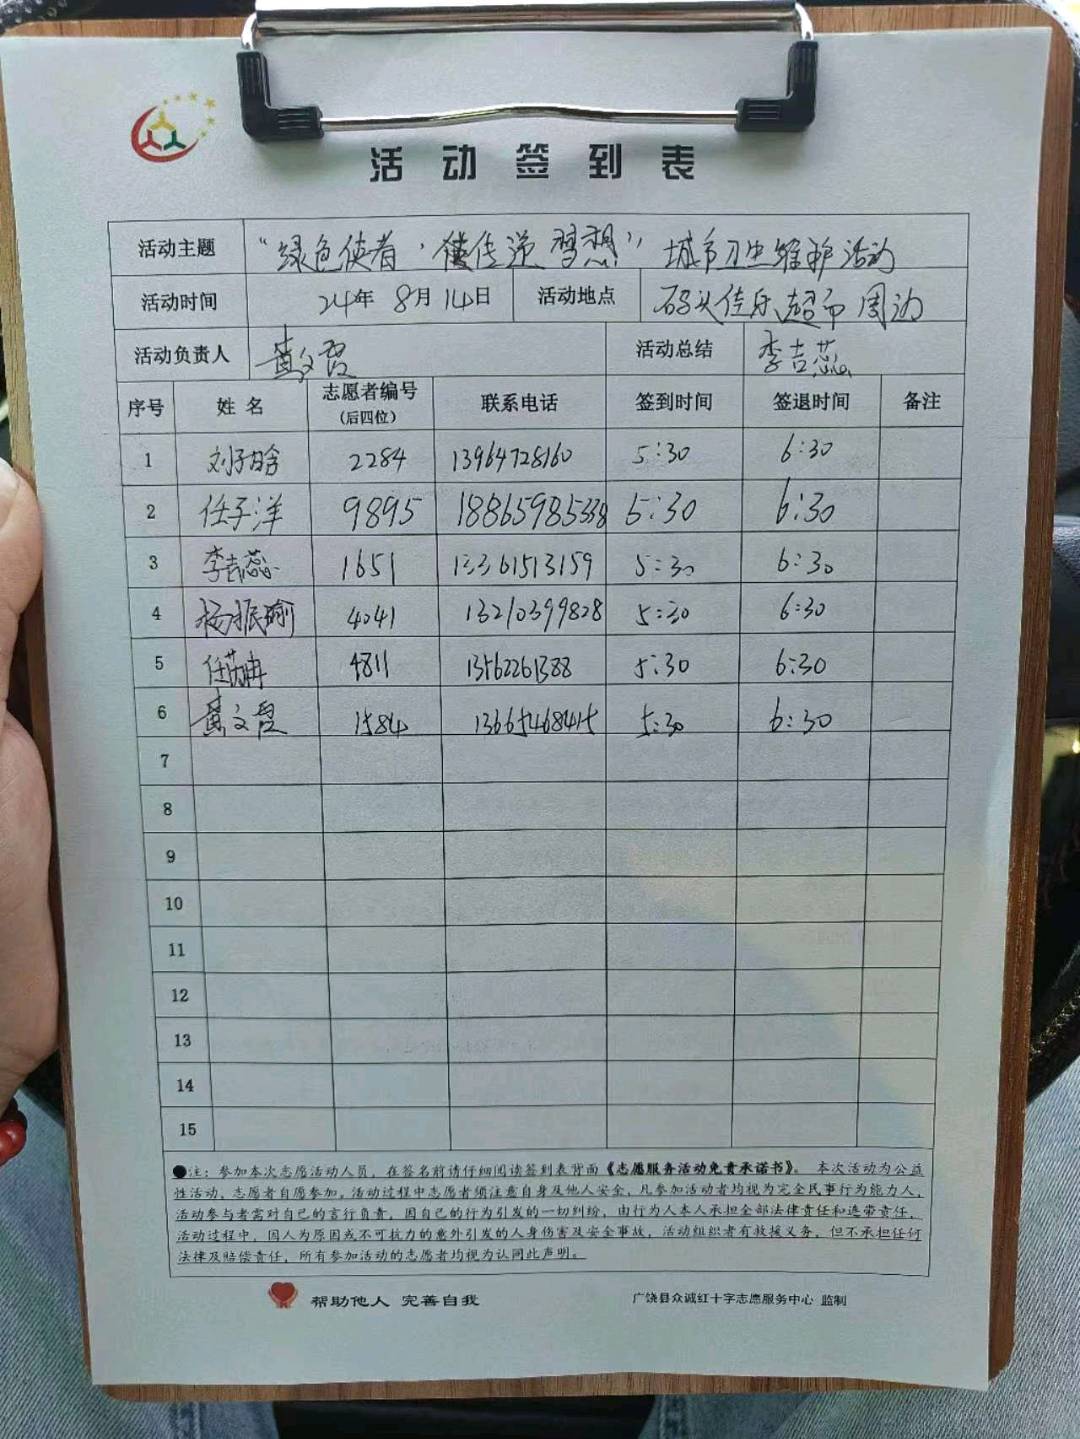 活动签到表
活动主题 "绿色使者，传递梦想" 城市卫生维护活动
活动时间 24年 8月 14日 活动地点 码头佳乐超市周边
活动负责人 黄文霞 活动总结 李吉蕊
序号 姓名 志愿者编号 (后四位) 联系电话 签到时间 签退时间 备注
1 刘子晗 2284 13964728160 5:30 6:30
2 任子洋 9895 18865985338 5:30 6:30
3 李吉蕊 1651 13361513159 5:30 6:30
4 杨振瑜 4041 13210399828 5:30 6:30
5 任芮冉 4811 13562261388 5:30 6:30
6 黄文霞 1584 13665468415 5:30 6:30
7
8
9
10
11
12
13
14
15
●注：参加本次志愿活动人员，在签名前请仔细阅读签到表背面《志愿服务活动免责承诺书》。 本次活动为公益
性活动，志愿者自愿参加，活动过程中志愿者须注意自身及他人安全，凡参加活动者均视为完全民事行为能力人，
活动参与者需对自己的言行负责，因自己的行为引发的一切纠纷，由行为人本人承担全部法律责任和连带责任，
活动过程中，因人为原因或不可抗力的意外引发的人身伤害及安全事故，活动组织者有救援义务，但不承担任何
法律及赔偿责任，所有参加活动的志愿者均视为认同此声明。
帮助他人 完善自我 广饶县众诚红十字志愿服务中心 监制